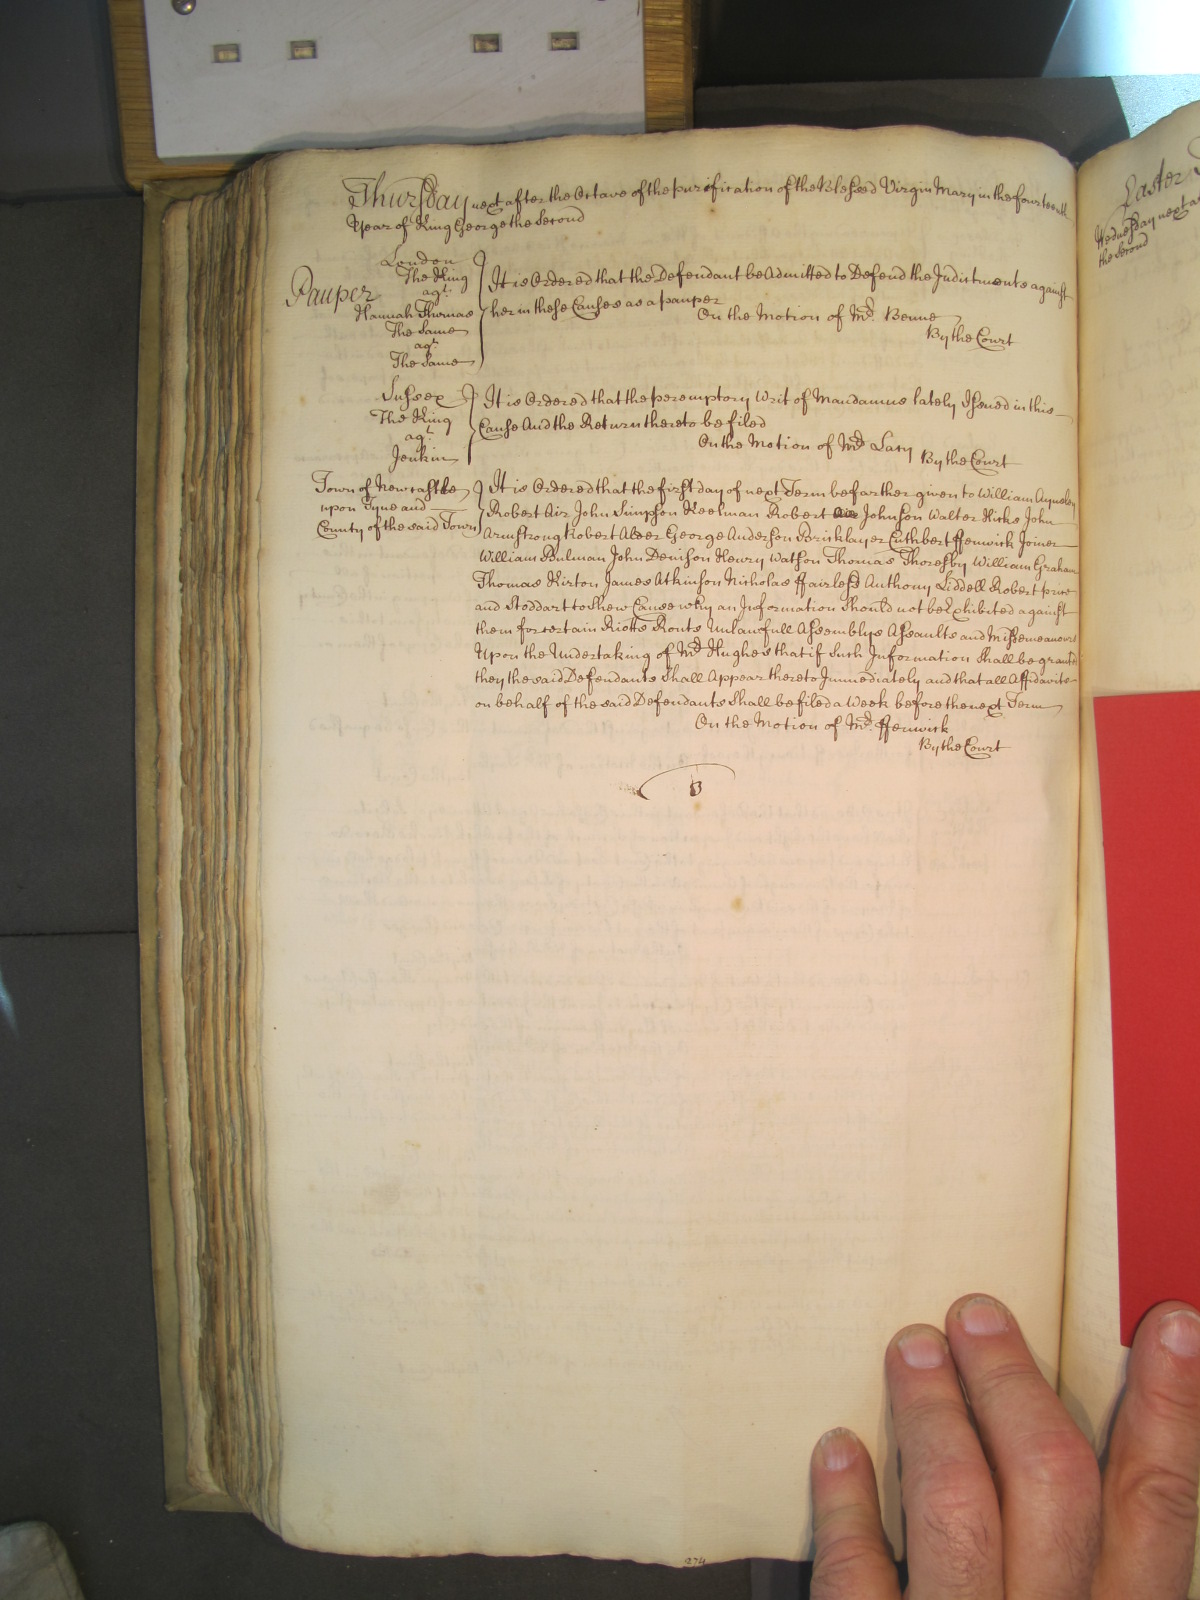 Thursday next after the Octave of the purification of the Blessed Virgin Mary in the fourteenth
Year of King George the Second
Pauper
London
The King
agt.
Hannah Thomas
The Same
agt.
The Same
It is Ordered that the Defendant be Admitted to Defend the Indictments against
her in these Causes as a pauper
On the Motion of Mr. Benne
By the Court
Sussex
The King
agt.
Jenkin
It is Ordered that the peremptory Writ of Mandamus lately Issued in this
Cause And the Return thereto be filed
On the Motion of Mr. Lacy
By the Court
Town of Newcastle
upon Tyne and
County of the said Town
It is Ordered that the first day of next Term be farther given to William Aynsley
Robert Air John Simpson Keelman Robert Johnson Walter Hicks John
Armstrong Robert Alder George Anderson Bricklayer Cuthbert ffenwick Joiner
William Bulman John Denison Henry Watson Thomas Thoresby William Graham
Thomas Kirton James Atkinson Nicholas ffairless Anthony Liddell Robert price
and Stoddart to Shew Cause why an Information Should not be Exhibited against
them for certain Riotts Routs Unlawfull Assemblys Assaults and Missemeanours
Upon the Undertaking of Mr. Hughes that if Such Information Shall be granted
they the said Defendants Shall Appear thereto Immediately and that all Affidavits
on behalf of the said Defendants Shall be filed a Week before the next Term
On the Motion of Mr. ffenwick
By the Court
274
Easter
Wednesday next a
the Second